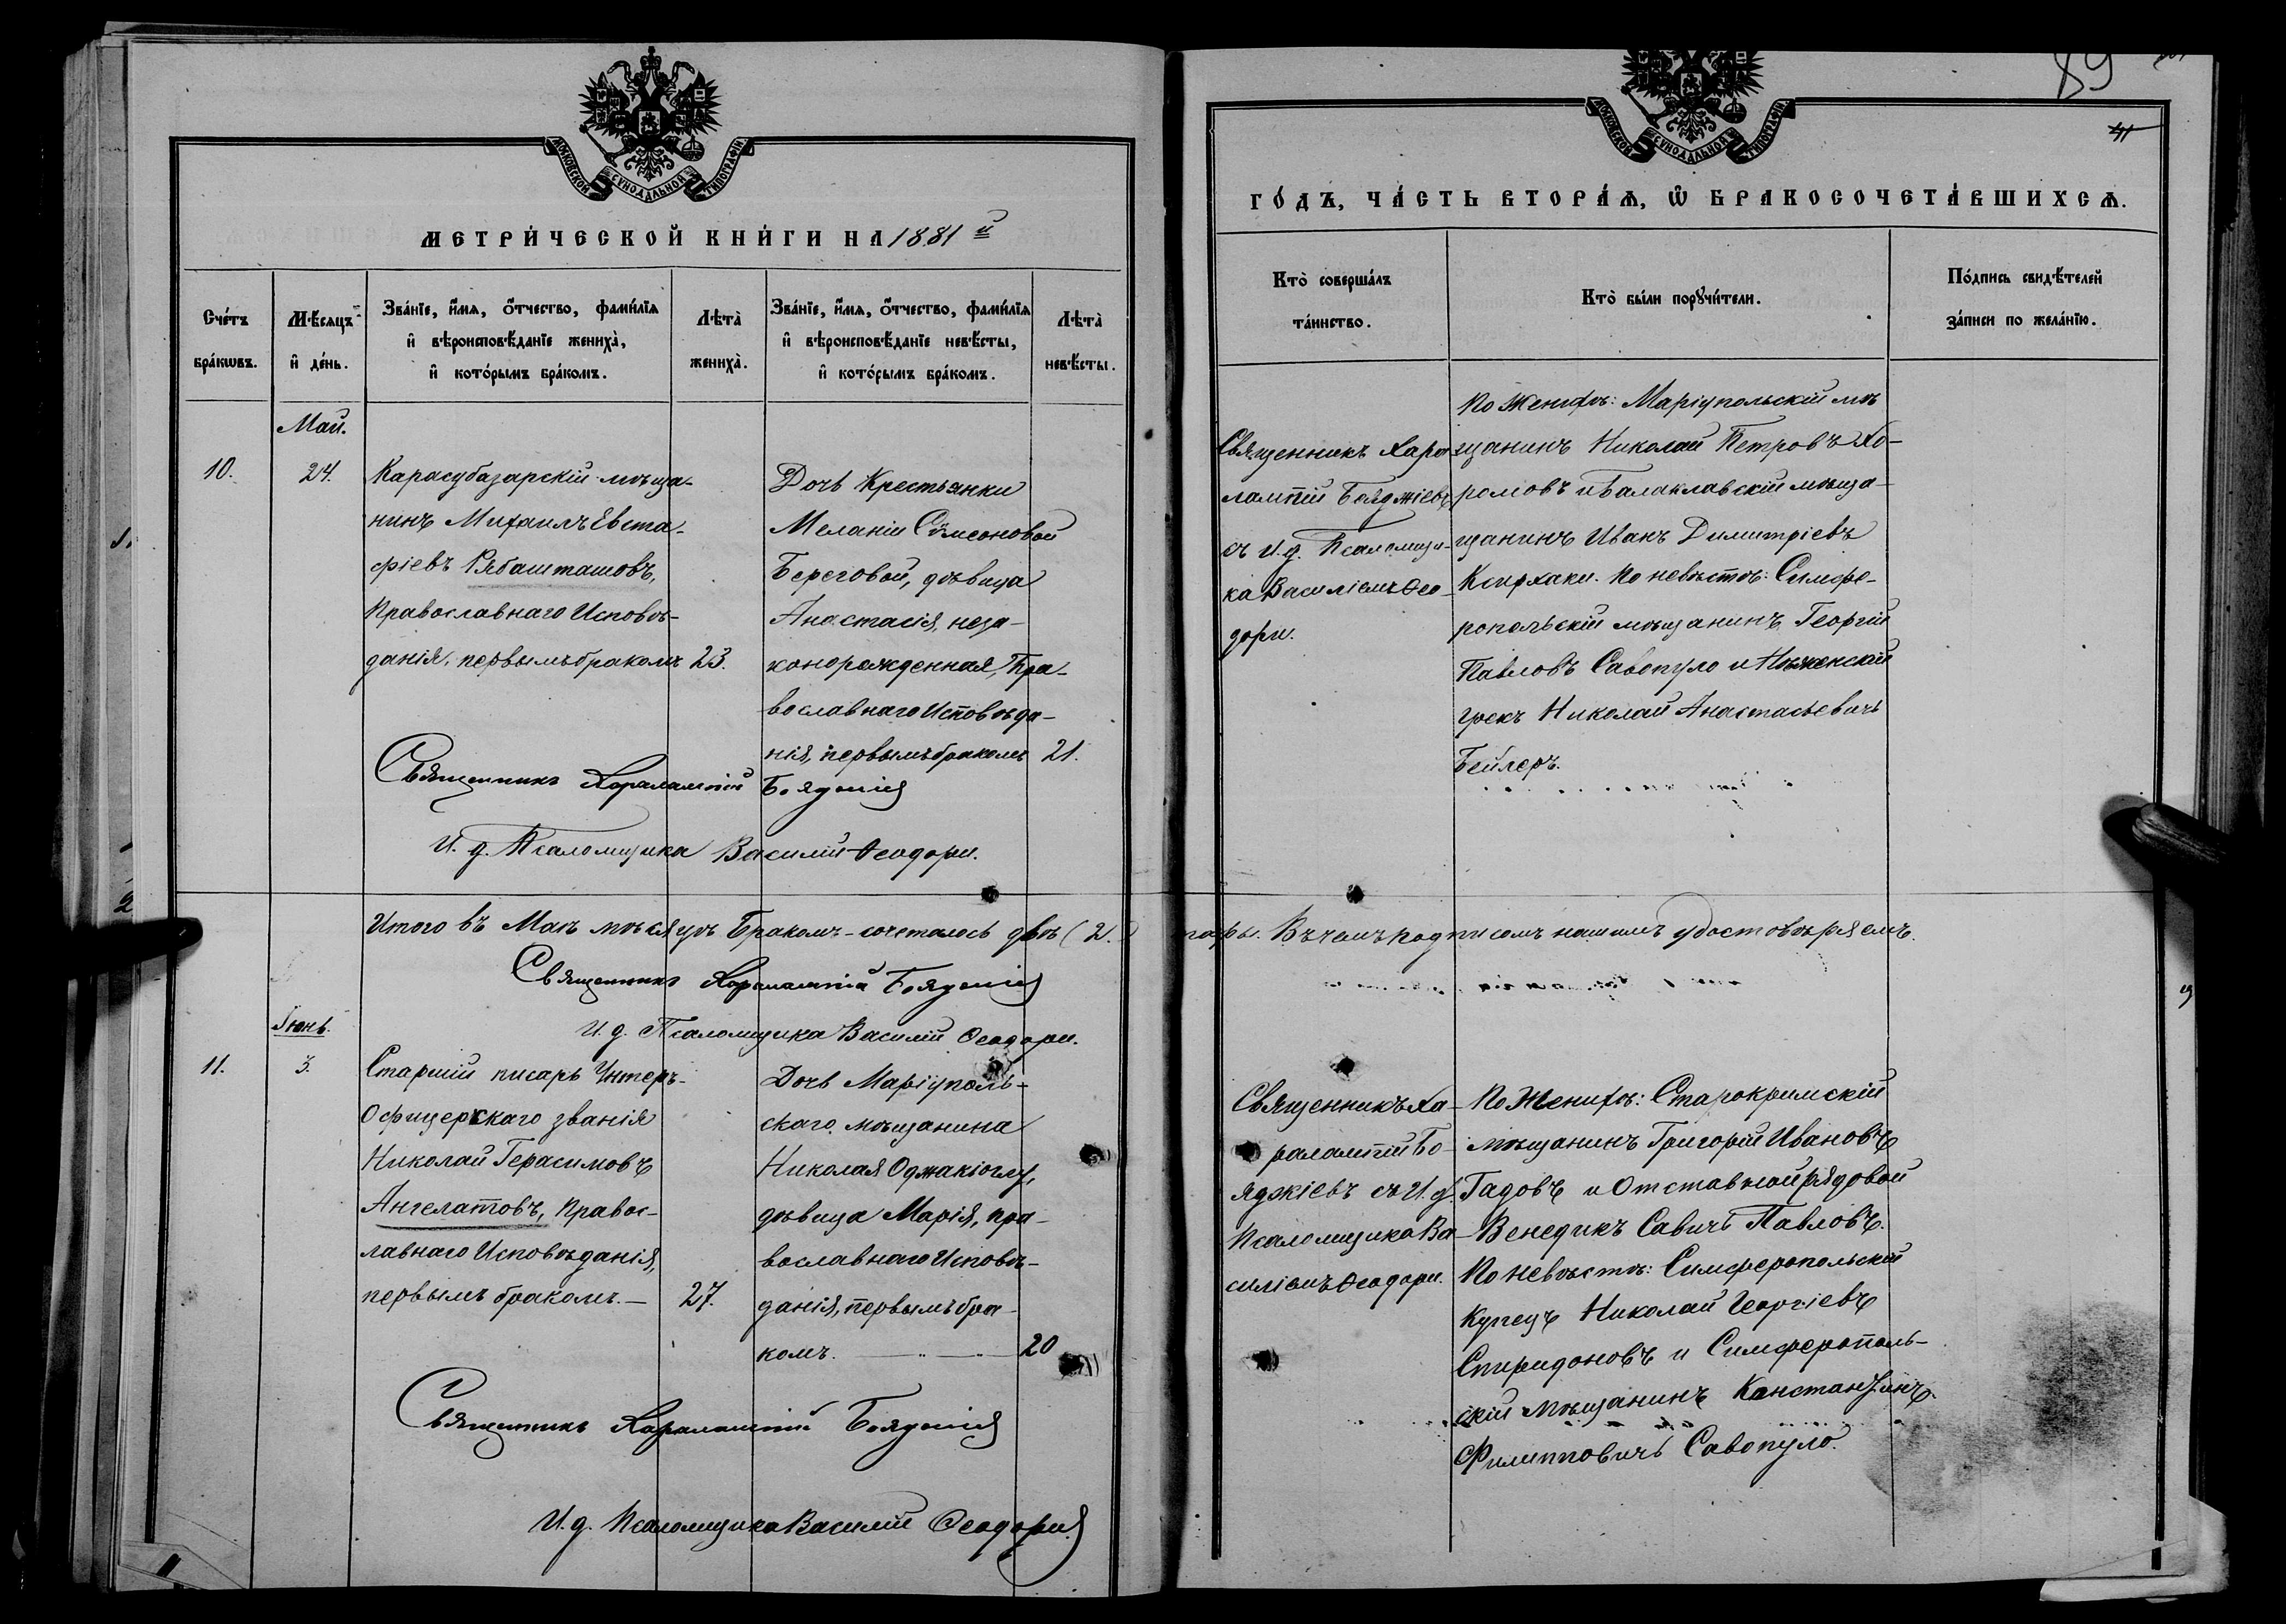 89
41
МОСКОВСКОЙ СѴНОДАЛЬНОЙ ТИПОГРАФІИ
МЕТРИ́ЧЕСКОЙ КНИ́ГИ НА 1881й
Сче́тъ бра́кѡвъ.
Мѣ́сяцъ и де́нь.
Зва́нїе, и́мѧ, ѻ́тчество, фами́лїѧ
и вѣроисповѣ́данїе жениха̀,
и кото́рымъ бра́комъ.
Лѣта̀ жениха̀.
Зва́нїе, и́мѧ, ѻ́тчество, фами́лїѧ
и вѣроисповѣ́данїе невѣ́сты,
и кото́рымъ бра́комъ.
Лѣта̀ невѣ́сты.
Май.
10.
24.
Карасубазарскій мѣща-
нинъ Михаилъ Евста-
фіевъ Рябашташовъ,
Православнаго Исповѣ-
данія, первымъ бракомъ 23.
Дочь Крестьянки
Меланіи Сѵмеоновой
Береговой, дѣвица
Анастасія, неза-
конорожденная, Пра-
вославнаго Исповѣда-
нія, первымъ бракомъ 21.
Священникъ Харалампій Бояджіевъ
И. д. Псаломщика Василій Ѳеодори.
Итого въ Маѣ мѣсяцѣ Бракомъ-сочеталось двѣ (2.
Священникъ Харалампій Бояджіевъ
И. д. Псаломщика Василій Ѳеодори.
Іюнь.
11.
3.
Старшій писарь Унтеръ-
Офицерскаго званія
Николай Герасимовъ
Ангелатовъ, Правос-
лавнаго Исповѣданія,
первымъ бракомъ. — 27.
Дочь Маріуполь-
скаго мѣщанина
Николая Оджакіоглу,
дѣвица Марія, пра-
вославнаго Исповѣ-
данія, первымъ бра-
комъ. 20
Священникъ Харалампій Бояджіевъ
И. д. Псаломщика Василій Ѳеодори.
МОСКОВСКОЙ СѴНОДАЛЬНОЙ ТИПОГРАФІИ
ГО́ДЪ, ЧА́СТЬ ВТОРА́Ѧ, Ѡ҆ БРАКОСОЧЕТА́ВШИХСѦ.
Кто̀ соверша́лъ
та́инство.
Кто̀ бы́ли порꙋчи́тели.
По́дпись свидѣ́телей
за́писи по жела́нїю.
Священникъ Хара-
лампій Бояджіевъ
съ И. д. Псаломщи-
ка Василіемъ Ѳео-
дори.
По Женихѣ: Маріупольскій мѣ
щанинъ Николай Петровъ Хо-
ромовъ и Балаклавскій мѣща-
щанинъ Иванъ Димитріевъ
Ксирхаки. По невѣстѣ: Симфе-
ропольскій мѣщанинъ Георгій
Павловъ Савопуло и Нѣженскій
грекъ Николай Анастасьевичъ
Бейлеръ.
пары. Въ чемъ подписомъ нашимъ удостовѣряемъ.
Священникъ Ха-
ралампій Бо-
яджіевъ съ И. д.
Псаломщика Ва-
силіемъ Ѳеодори.
По Женихѣ: Старокримскій
мѣщанинъ Григорій Ивановъ
Гадовъ и Отставной рядовой
Венедикъ Савичъ Павловъ.
По невѣстѣ: Симферопольскій
купецъ Николай Георгіевъ
Спиридоновъ и Симферополь-
скій мѣщанинъ Константинъ
Филипповичъ Савопуло.